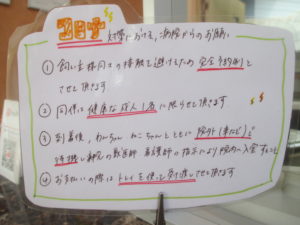 コロナ 対策における、病院からのお願い
① 飼い主様同士の接触を避けるため 完全予約制と
させて頂きます
② 同伴は 健康な成人1名に限らせて頂きます
③ 到着後、わんちゃん ねこちゃんとともに 院外(車など)で
待機し 病院の獣医師 看護師の指示により院内へ入室すること
④ お支払いの際は トレイを使って受け渡しさせて頂きます